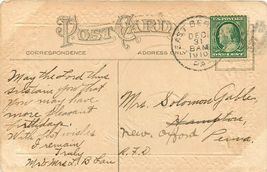 POST CARD
CORRESPONDENCE
ADDRESS
EAST BERLIN
DEC 31
8 AM
1910
PA.
May the Lord thus
you that
you may have
more pleasant
birthdays.
With best wishes
I remain
Truly
Mr & Mrs L. B. Lau
Mrs. Solomon Gable,
Hampton,
New Oxford
Penna.
R.F.D.